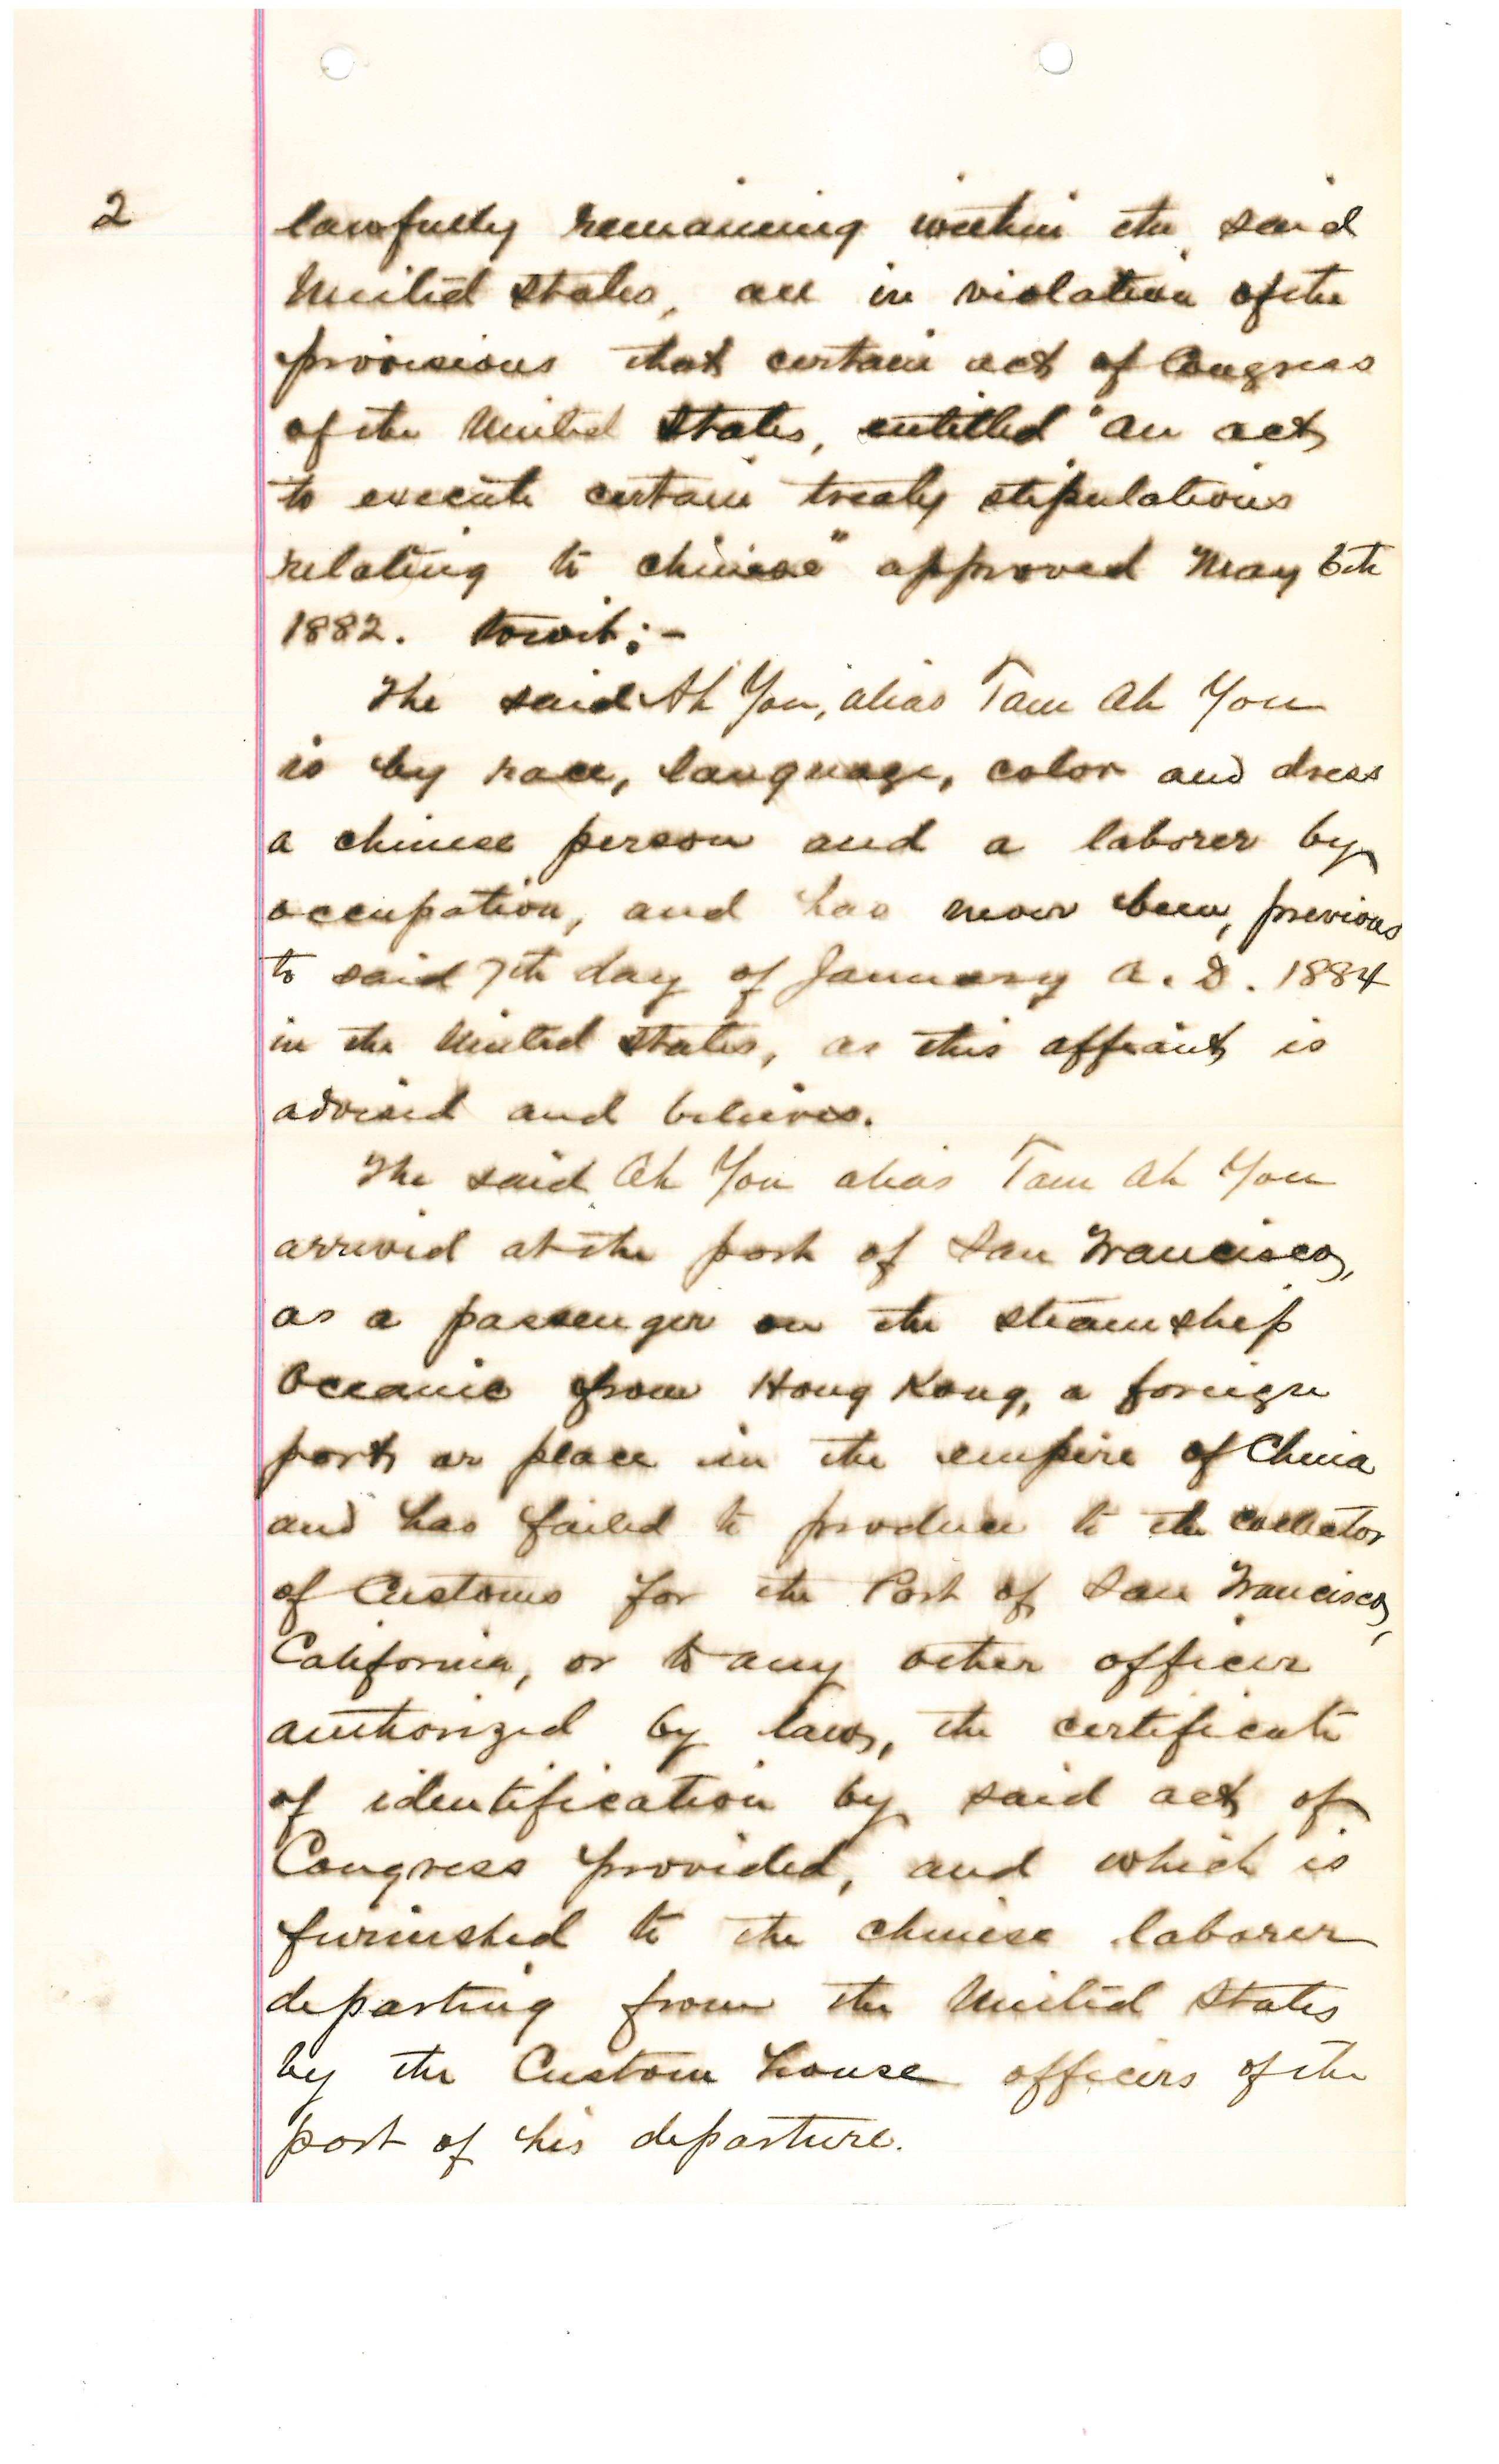 2
lawfully remaining within the said
United States, all in violation of the
provisions that certain act of Congress
of the United States, entitled "An act
to execute certain treaty stipulations
relating to chinese" approved May 6th
1882. towit:-
The said Ah You, alias Tam Ah You
is by race, language, color and dress
a chinese person and a laborer by
occupation, and has never been, previous
to said 7th day of January A. D. 1884
in the United States, as this affiant is
advised and believes.
The said Ah You alias Tam Ah You
arrived at the port of San Francisco,
as a passenger on the steamship
Oceanic from Hong Kong, a foreign
port or place in the empire of China
and has failed to produce to the collector
of Customs for the Port of San Francisco,
California, or to any other officer
authorized by law, the certificate
of identification by said act of
Congress provided, and which is
furnished to the chinese laborer
departing from the United States
by the Custom house officers of the
port of his departure.